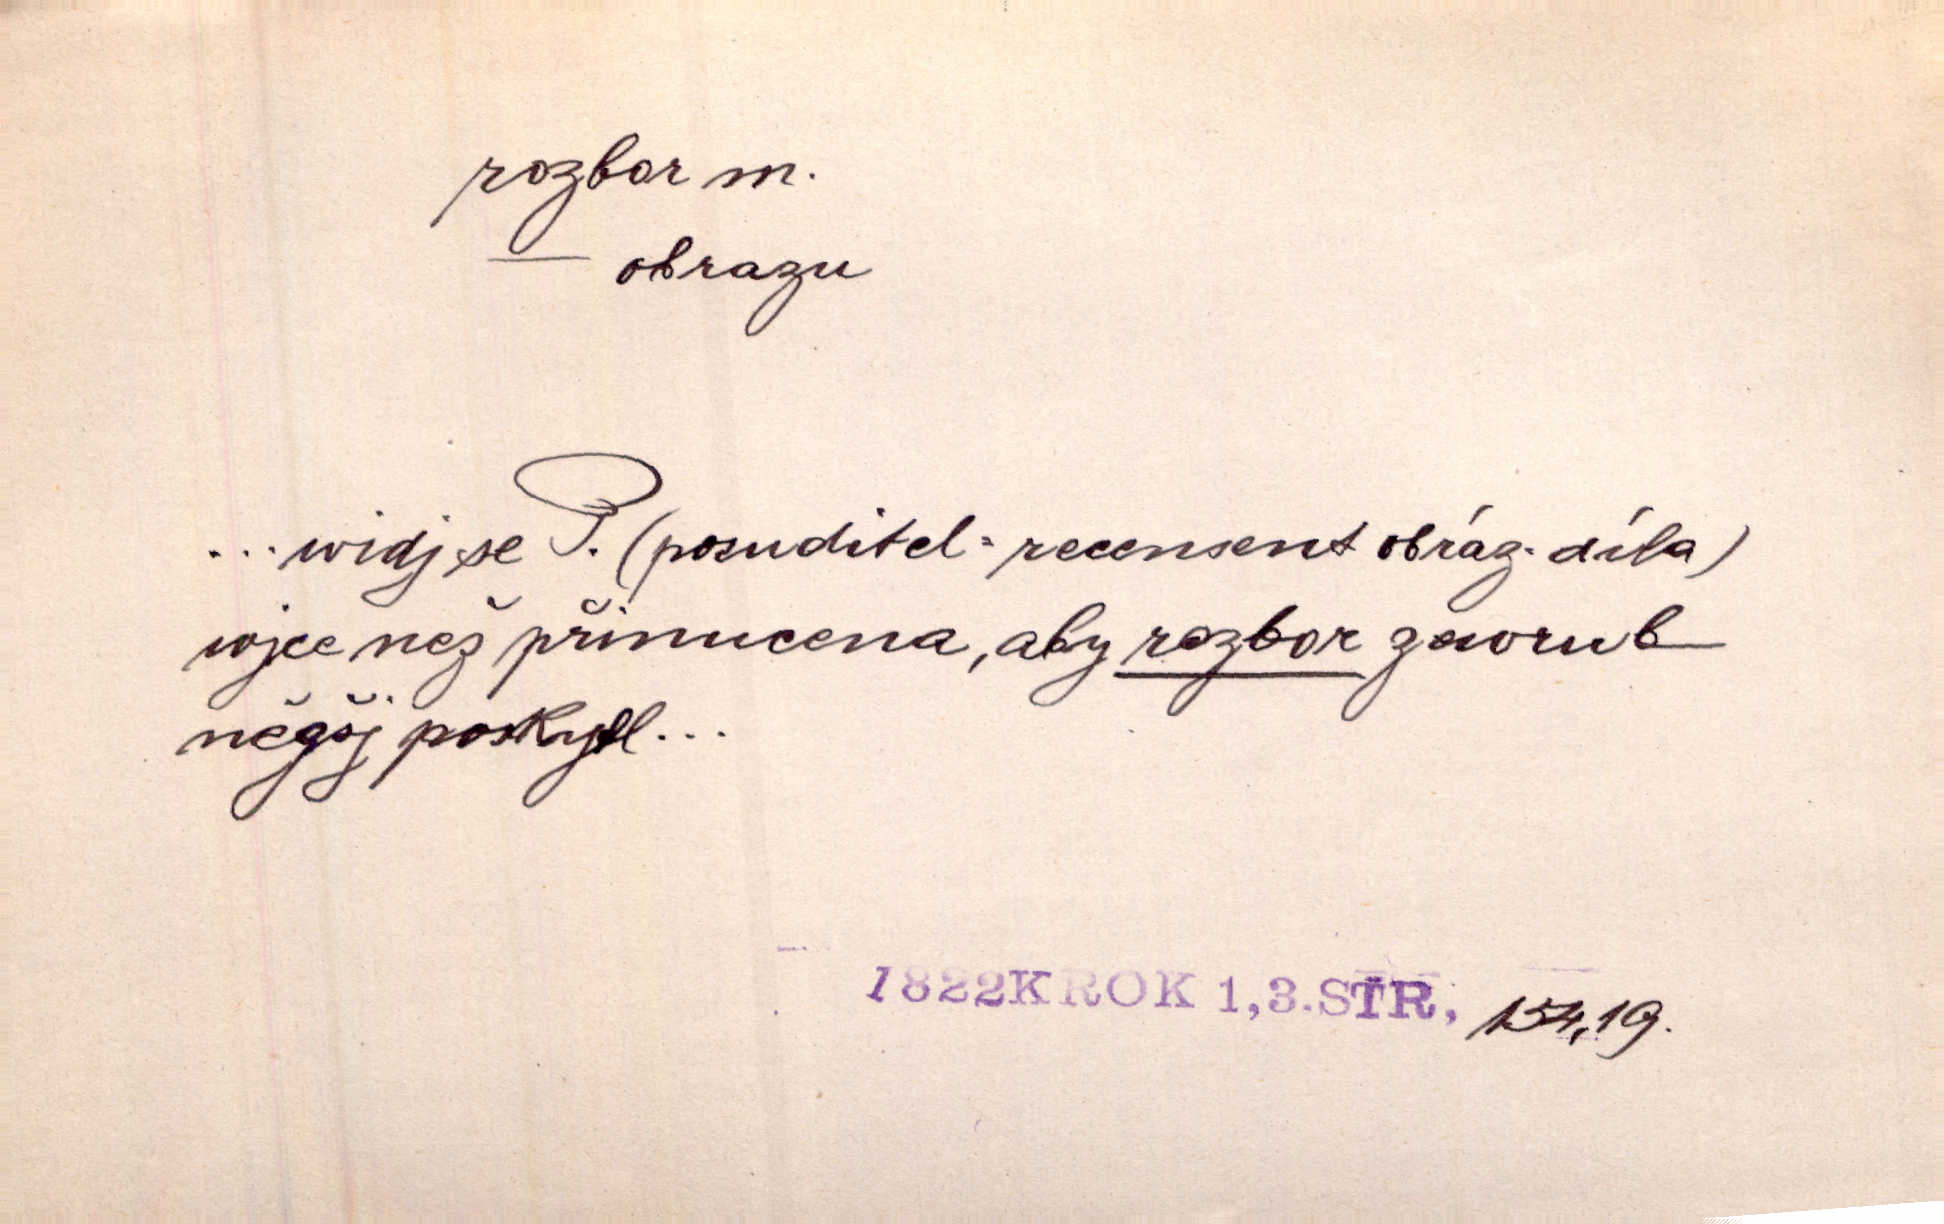 rozbor m.
— obrazu
... widj se P. (posuditel = recensent obráz. díla)
wjce než přinucena, aby rozbor zewrub
něgšj poskytl...
1822 KROK 1,3. STR, 154,19.